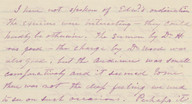 I have not spoken of Edw'd's ordination
The services were interesting — they could
hardly be otherwise. The sermon by Dr. H.
was good — the charge by Dr. Ward was
also good, but the audience was small
comparatively and it seemed to me
there was not the deep feeling we used
to see on such occasions. Perhaps it